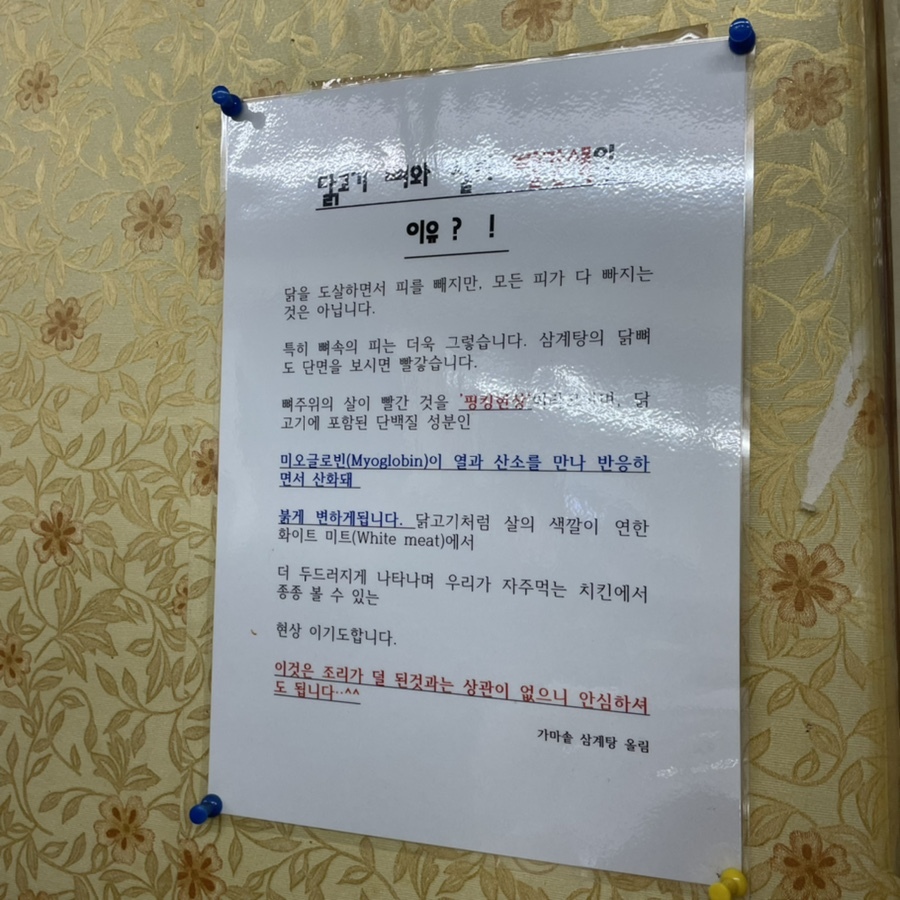 닭고기 뼈와
이유 ? !
닭을 도살하면서 피를 빼지만, 모든 피가 다 빠지는
것은 아닙니다.
특히 뼈속의 피는 더욱 그렇습니다. 삼계탕의 닭뼈
도 단면을 보시면 빨갛습니다.
뼈주위의 살이 빨간 것을 '핑킹현상' 닭
고기에 포함된 단백질 성분인
미오글로빈(Myoglobin)이 열과 산소를 만나 반응하
면서 산화돼
붉게 변하게됩니다. 닭고기처럼 살의 색깔이 연한
화이트 미트(White meat)에서
더 두드러지게 나타나며 우리가 자주먹는 치킨에서
종종 볼 수 있는
현상 이기도합니다.
이것은 조리가 덜 된것과는 상관이 없으니 안심하셔
도 됩니다..^^
가마솥 삼계탕 올림